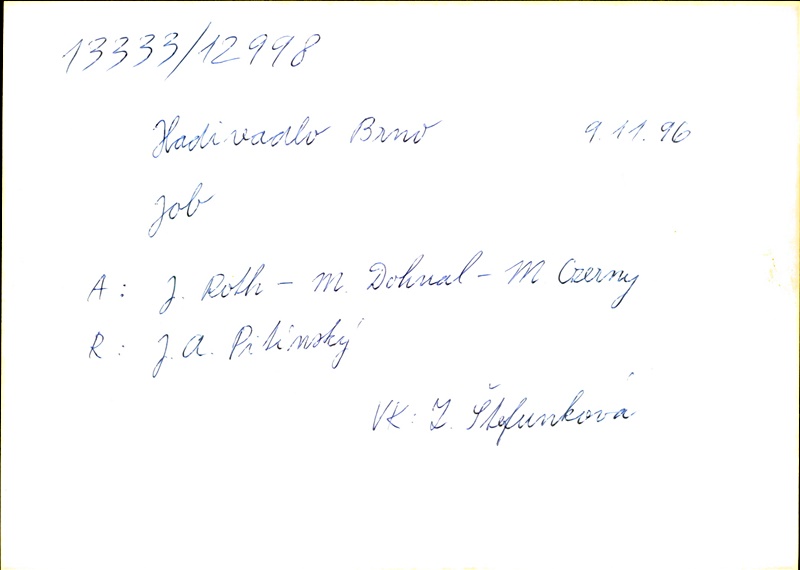 13333/12998
Hadivadlo Brno 9.11.96
Job
A: J. Roth - M. Dohnal - M Czerny
R: J.A. Pitínský
VK: Z. Štefunková